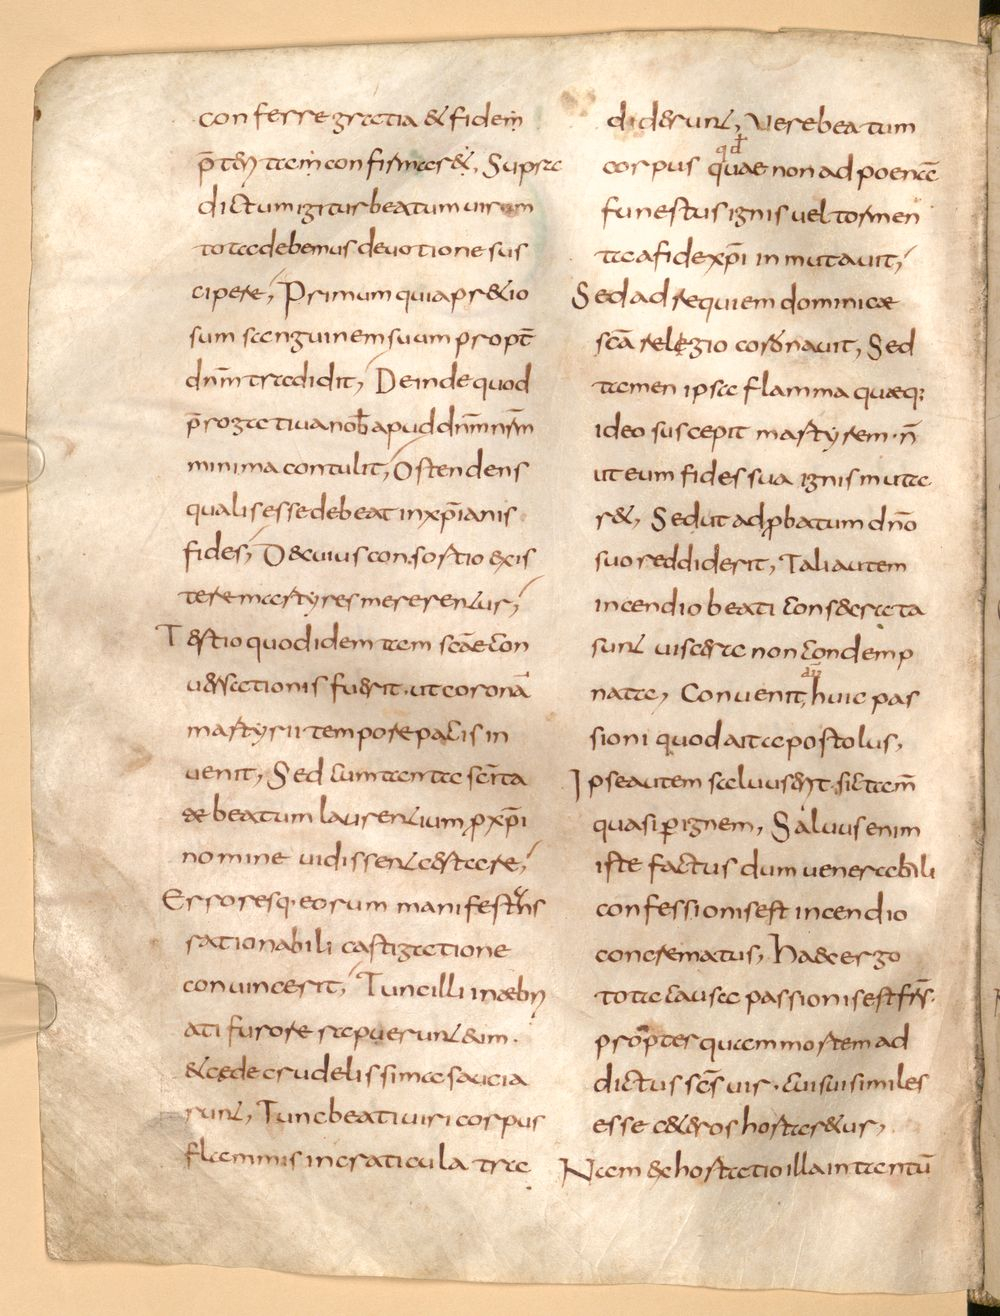 conferre gratia & fidem
p̄tẽntem confirmar&, Supra
dictum igitur beatum uirum
tota debemus deuotione sus
cipere, Primum quia pr&io
sum sanguinem suum propt̄
dnm̄ tradidit, Deinde quod
p̄rogatiua nob̄ apud dnm̄ nrm̄
minima contulit, Ostendens
qualis esse debeat in xp̄ianis
fides, O& cuius consortio exis
tere martyres mererentur,
T estio quod idem tam scāe con
uersationis fuerit. ut coronā
martyrii tempore pacis in
uenit, Sed cum tanta scīta
te beatum laurentium p xp̄i
nomine uidissent certare,
Erroresq. eorum manifestius
rationabili castigatione
conuincerit, Tunc illi inaebri
ati furore rapuerunt eum.
& caede crudelissima saucia
runt, Tunc beati uiri corpus
flammis in craticula tra
diderunt, Vere beatum
qd̄
corpus quae non ad poenā
funestus ignis uel tormen
ta a fide xp̄i inmutauit,
Sed ad requiem dominicae
scā relegio coronauit, Sed
tamen ipsa flamma quaeq;
ideo suscepit martyrem. n̄
ut eum fides sua ignis muta
r&, Sed ut adpbatum dn̄o
suo reddiderit, Tali autem
incendio beati consecrata
sunt uiscera non condemp
dn̄i
nata, Conuenit, huic pas
sioni quod ait apostolus,
Ipse autem saluus erit. sic tam̄
quasi p ignem, Saluus enim
iste factus dum uenerabili
confessionis est incendio
concrematus, Haec ergo
tota causa passionis est frs̄.
propter quam mortem ad
dictus scs̄ uir. cui sui similes
esse c&eros hortar&ur,
Nam & hortatio illa in tantū